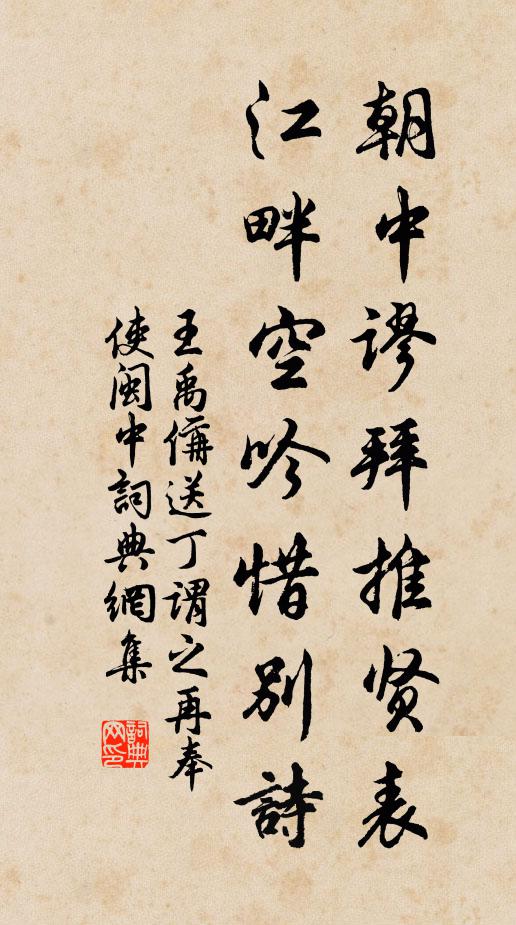 朝中谬拜推贤表
江畔空吟惜别詩
王禹偁送丁謂之再奉
使閩中詞典網集
詞典网印